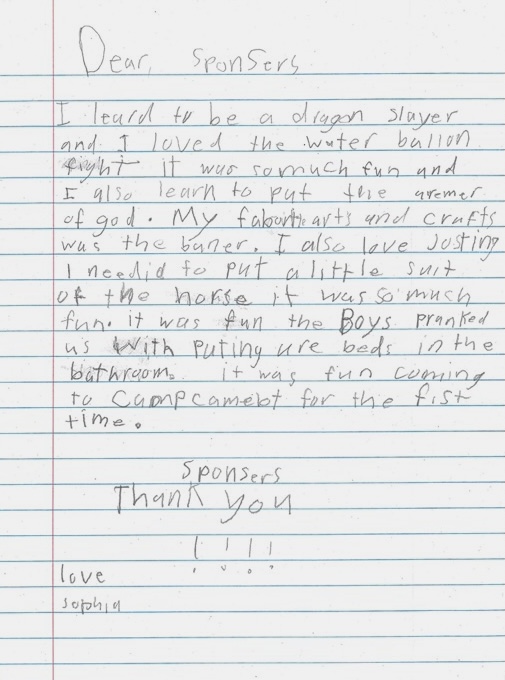 Dear, sponsers
I leard to be a dragon slayer
and I loved the water ballon
fight it was so much fun and
I also learn to put the aremer
of god. My faborit arts and crafts
was the baner. I also love Josting
I needid to put a little suit
of the horse it was so much
fun. it was fun the Boys pranked
us with puting ure beds in the
bathroom. it was fun coming
to for the fist
time.
sponsers
Thank you
! ! ! !
love
sophia